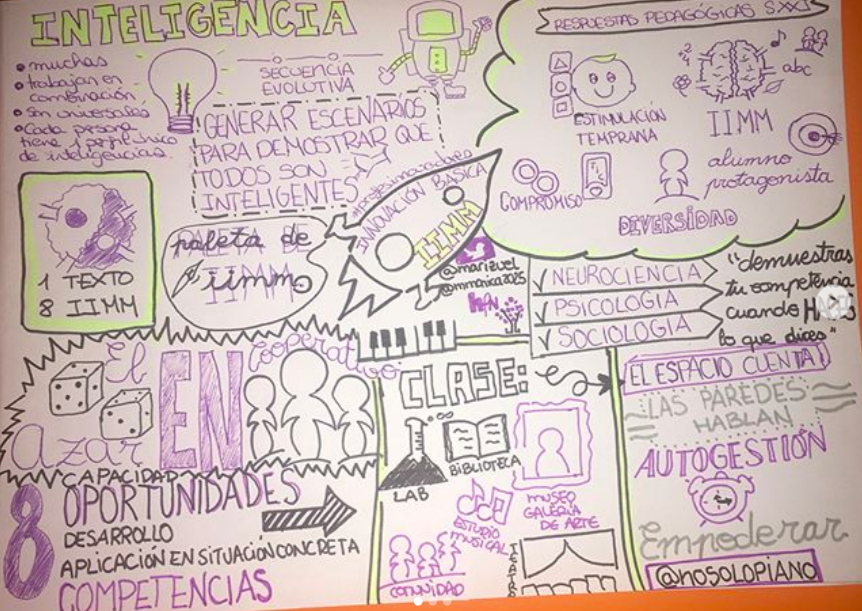 INTELIGENCIA
• muchas
• trabajan en
combinación
• son universales
• Cada persona
tiene 1 perfil único
de inteligencias.
SECUENCIA
EVOLUTIVA
GENERAR ESCENARIOS
PARA DEMOSTRAR QUE
TODOS SON
INTELIGENTES
1 TEXTO
8 IIMM
paleta de
iimm
INNOVACIÓN BÁSICA
IIMM
@marizuel
@mmonica2025
RESPUESTAS PEDAGÓGICAS S.XXI
ESTIMULACIÓN
TEMPRANA
abc
IIMM
COMPROMISO
alumno
protagonista
DIVERSIDAD
√ NEUROCIENCIA
√ PSICOLOGIA
√ SOCIOLOGIA
"demuestras
tu competencia
cuando
lo que dices"
El
azar
EN
cooperativo
CAPACIDAD
8 OPORTUNIDADES
DESARROLLO
APLICACIÓN EN SITUACIÓN CONCRETA
COMPETENCIAS
CLASE:
LAB
BIBLIOTECA
MUSEO
GALERÍA
DE ARTE
ESTUDIO
MUSICAL
COMUNIDAD
TEATRO
EL ESPACIO CUENTA
LAS PAREDES
HABLAN
AUTOGESTIÓN
Empoderar
@nosolopiano